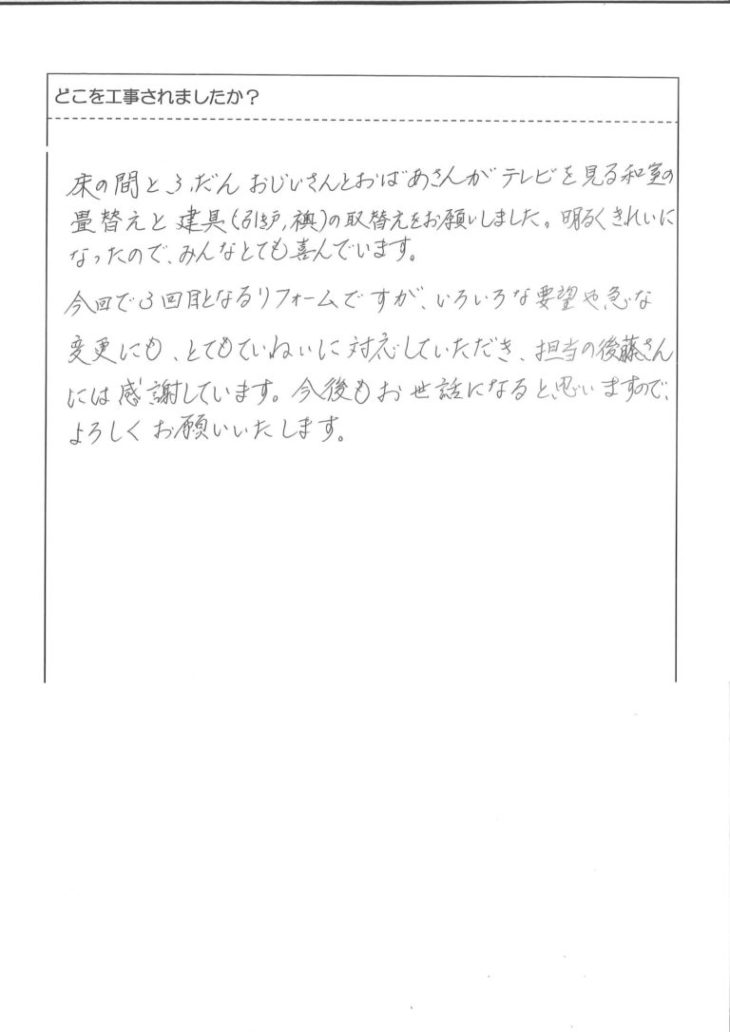 どこを工事されましたか？
床の間と、ふだん おじいさんとおばあさんが テレビを見る和室の
畳替えと 建具(引き戸,襖)の取替えをお願いしました。明るくきれいに
なったので、みんなとても喜んでいます。
今回で3回目となるリフォームですが、いろいろな要望や急な
変更にも、とてもていねいに対応していただき、担当の後藤さん
には感謝しています。今後もお世話になると思いますので、
よろしくお願いいたします。